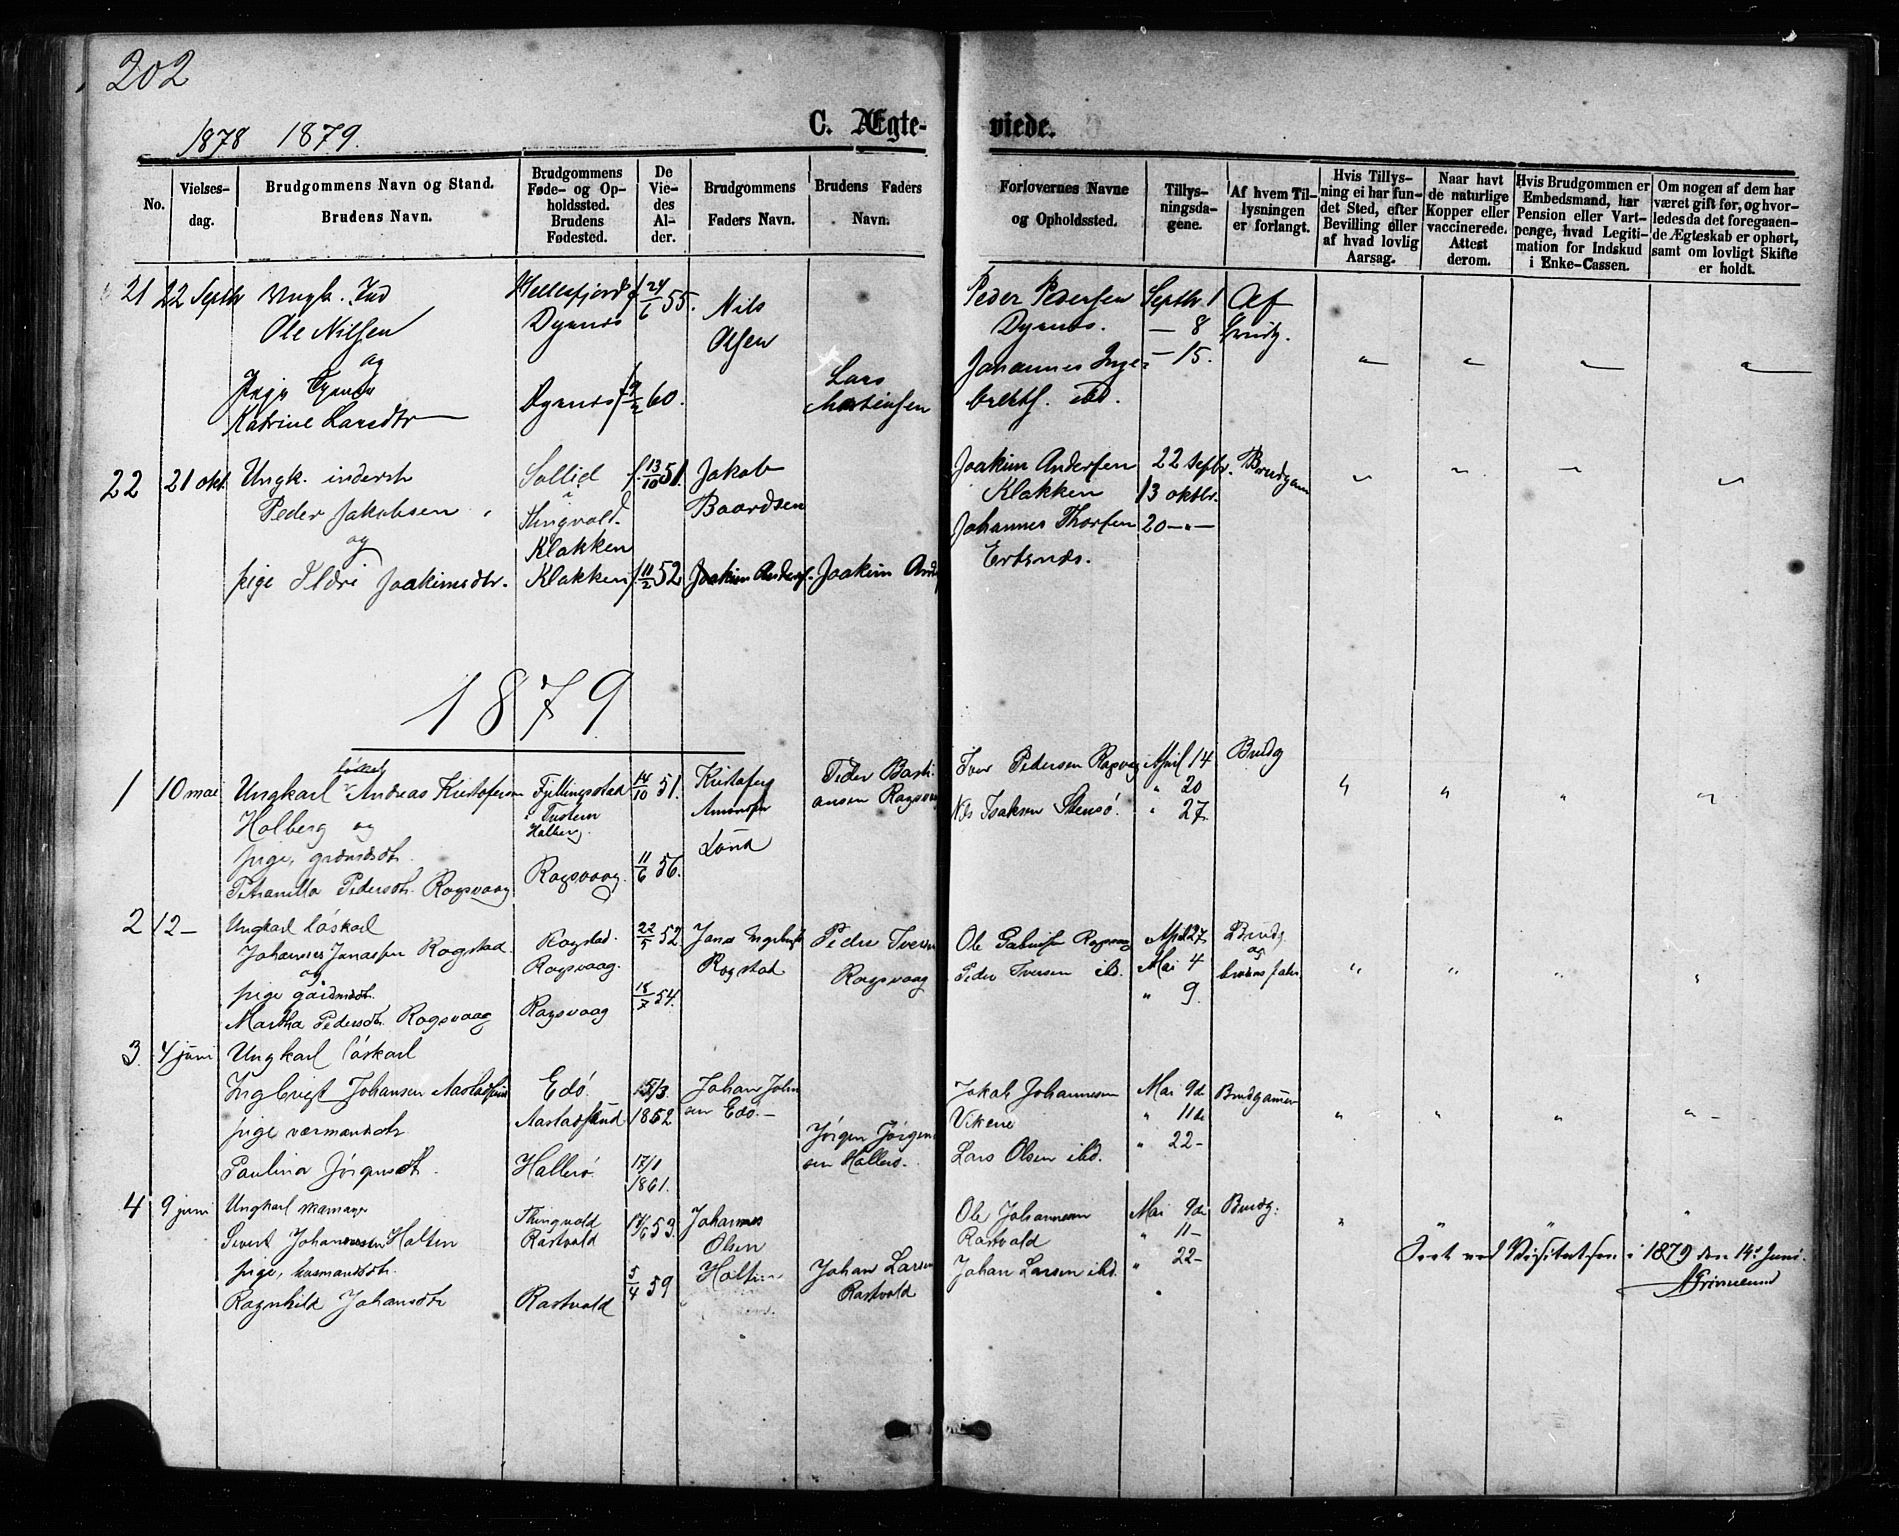 202
1878 1879.
C. Ægteviede.
No.
Vielsesdag.
Brudgommens Navn og Stand.
Brudens Navn.
Brudgommens
Føde- og Op-
holdssted.
Brudens
Fødested.
De
Vie-
des
Al-
der.
Brudgommens
Faders Navn.
Brudens Faders
Navn.
Forlovernes Navne
og Opholdssted.
Tillys-
ningsda-
gene.
Af hvem Til-
lysningen
er forlangt.
Hvis Tillys-
ning ei har fun-
det Sted, efter
Bevilling eller
af hvad lovlig
Aarsag.
Naar havt
de naturlige
Kopper eller
vaccinerede.
Attest
derom.
Hvis Brudgommen er
Embedsmand, har
Pension eller Vart-
penge, hvad Legiti-
mation for Indskud
i Enke-Cassen.
Om nogen af dem har
været gift før, og hvor-
ledes da det foregaaen-
de Ægteskab er ophørt,
samt om lovligt Skifte
er holdt.
21 22 Septbr Ungk. Ind
Ole Nilsen
og
Pige
Katrine Larsdtr
Dyrnes
Dyrnes
f 24/6 55.
f 9/2 60.
Nils
Olsen
Lars
Mortensen
Peder Pedersen
Dyrnes.
Johannes Inge-
brekts. ibd.
Septbr 1
— 8
— 15.
22 21 okt. Ungk. inderst
Peder Jakobsen
og
pige Joakimsdtr.
Sollid
Thingvold.
Klakken
Klakken
f. 13/10 51.
f 11/2 52
Jakob
Baardsen
Joakim Anders.
Joakim And
Joakim Andersen
Klakken
Johannes Thorsen
Ertsnæs.
22 Septbr.
13 oktbr.
20 — " —
Brudgom
1879
1 10 mai Ungkarl løskarl Andreas Kristofersen
Holberg og
pige, grdmdsdtr.
Petranilla Pedersdtr. Rogsvaag
Fjellingsstad
Tustern
Holberg.
Rogsvaag.
14/10 51.
11/6 56.
Kristofer
Lund
Peder Basti-
ansen Rogsvaag
Iver Pedersen Rogsvag
Nils Isaksen Stensø.
April 14
" 20
" 27
Brudg
2 12 — Ungkarl løskarl
Johannes Jonassen Rogstad
og
pige gårdmdsdtr.
Martha Pedersdtr. Rogsvaag
Rogstad.
Rogsvaag.
Rogsvaag
22/5 52
18/7 54.
Jonas Ingebrigts
Rogstad
Peder Iversen
Rogsvaag
Ole Rogsvaag
Peder Iversen ibd.
April 27
Mai 4
" 9.
Brudg
og
brudens fader
3 4 juni Ungkarl løskarl
Ingbrigt Johansen Aastadsund
pige værmandsdtr
Paulina Jørgensdtr.
Edø.
Aastadsund
Hallerø.
1852
17/1
1861.
Johan John
sen Edø. —
Jørgen Jørgen
sen Hallerø.
Jakob Johannesen
Vikene
Lars Olsen ibd.
Mai 9de
" 11te
" 22 —
Brudgommen
4 9 juni Ungkarl skomager
Sivert Johannessen Holten
pige, husmandsdtr.
Ragnhild Johansdtr
Thingvold
Rastvold
Rastvold
17/6 53.
5/4 59
Johannes
Olsen
Holten
Johan Larsen
Rastvold
Ole Johannesen
Rastvold
Johan Larsen ibd.
Mai 9de
" 11 —
" 22 —
Brudg:
Seet ved Visitatsen i 1879 den 14de Juni.